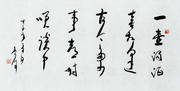 一壶浊酒
喜相逢
古今多少
事都付
笑谈中